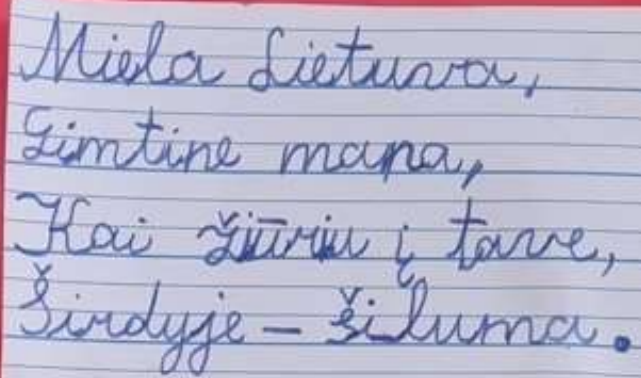 Miela Lietuva,
Gimtine mana,
Kai žiūriu į tave,
Širdyje – šiluma.